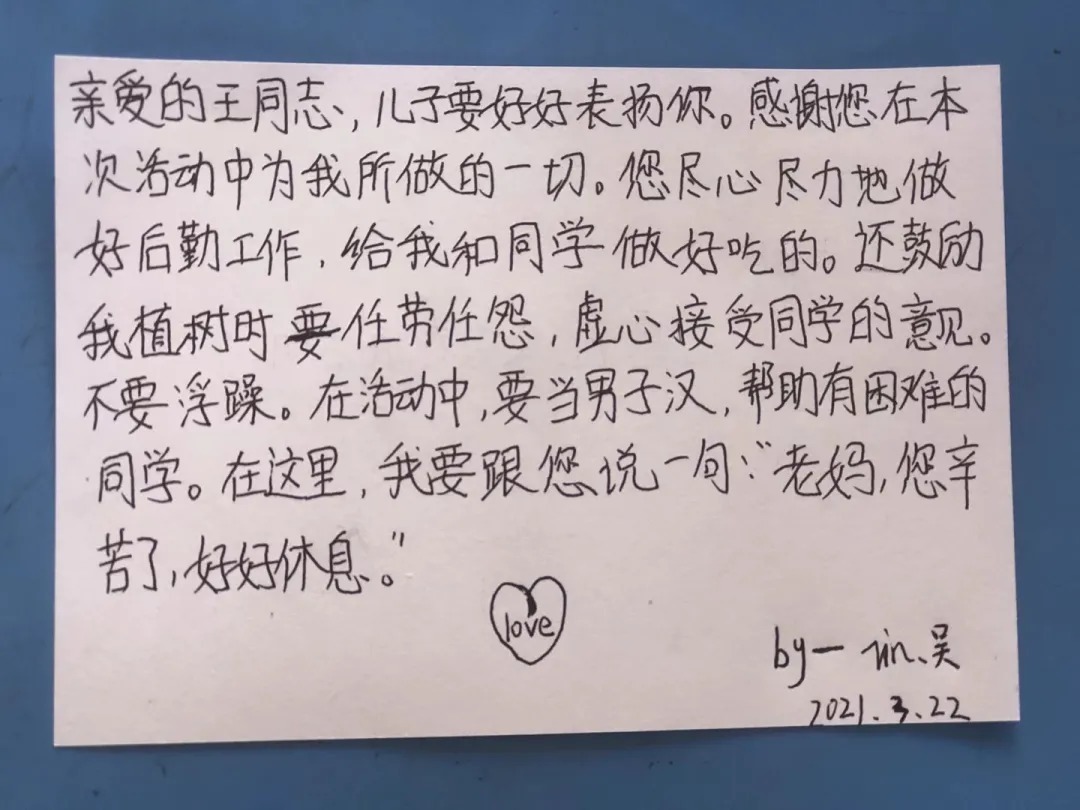 亲爱的王同志、儿子要好好表扬你。感谢您在本
次活动中为我所做的一切。您尽心尽力地做
好后勤工作，给我和同学做好吃的。还鼓励
我植树时要任劳任怨，虚心接受同学的意见。
不要浮躁。在活动中，要当男子汉，帮助有困难的
同学。在这里，我要跟您说一句：“老妈，您辛
苦了，好好休息。”
love
by一 吴
2021.3.22